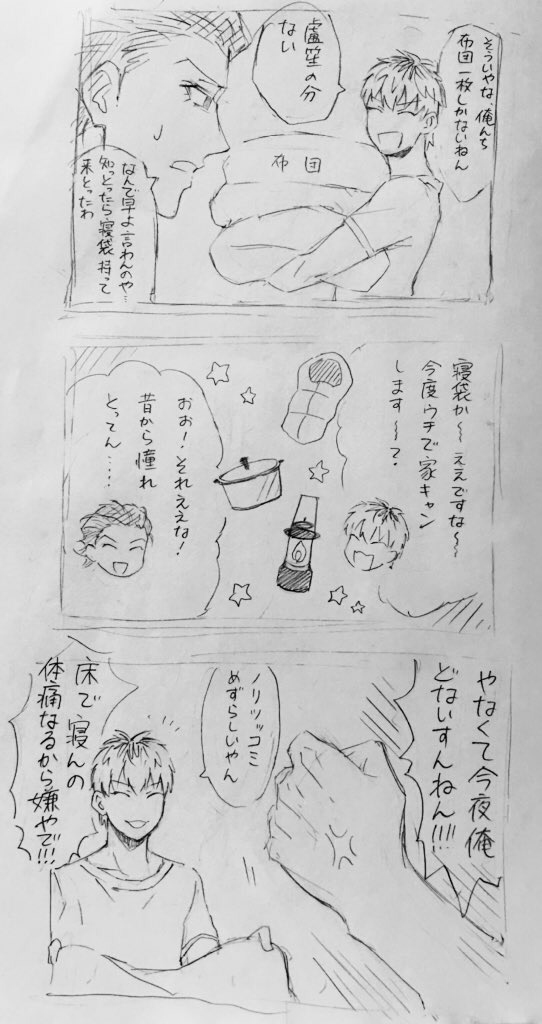 そういやな、俺んち
布団一枚しかないねん
盧笙の分
ない
布団
なんで早よ言わんのや…
知っとったら寝袋持って
来とったわ
寝袋か〜ええですな〜〜
今度ウチで家キャン
します〜？
おお！それええな！
昔から憧れ
とってん……
やなくて今夜俺
どないすんねん!!!!
ノリツッコミ
めずらしいやん
床で寝んの
体痛なるから嫌やで!!!